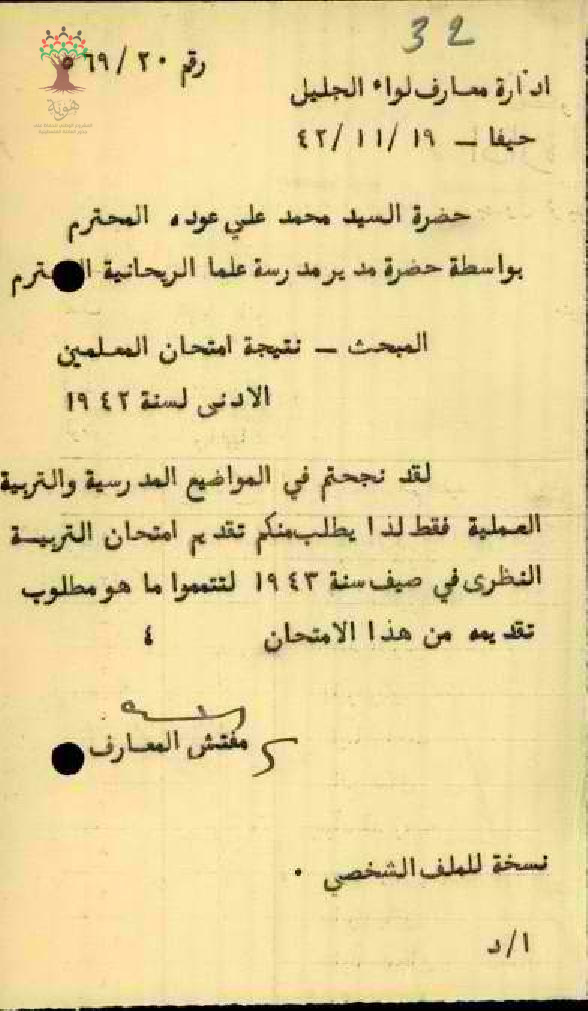 32
رقم ٢٠/٥٦٩
ادارة معارف لواء الجليل
حيفا – ٤٢/١١/١٩
حضرة السيد محمد علي عوده المحترم
بواسطة حضرة مدير مدرسة علما الريحانية المحترم
المبحث – نتيجة امتحان المعلمين
الادنى لسنة ١٩٤٢
لقد نجحتم في المواضيع المدرسية والتربية
العملية فقط لذا يطلب منكم تقديم امتحان التربيـة
النظرى في صيف سنة ١٩٤٣ لتتمموا ما هو مطلوب
تقديمه من هذا الامتحان ٤
مفتش المعارف
نسخة للملف الشخصي ٠
ا/د
هوية